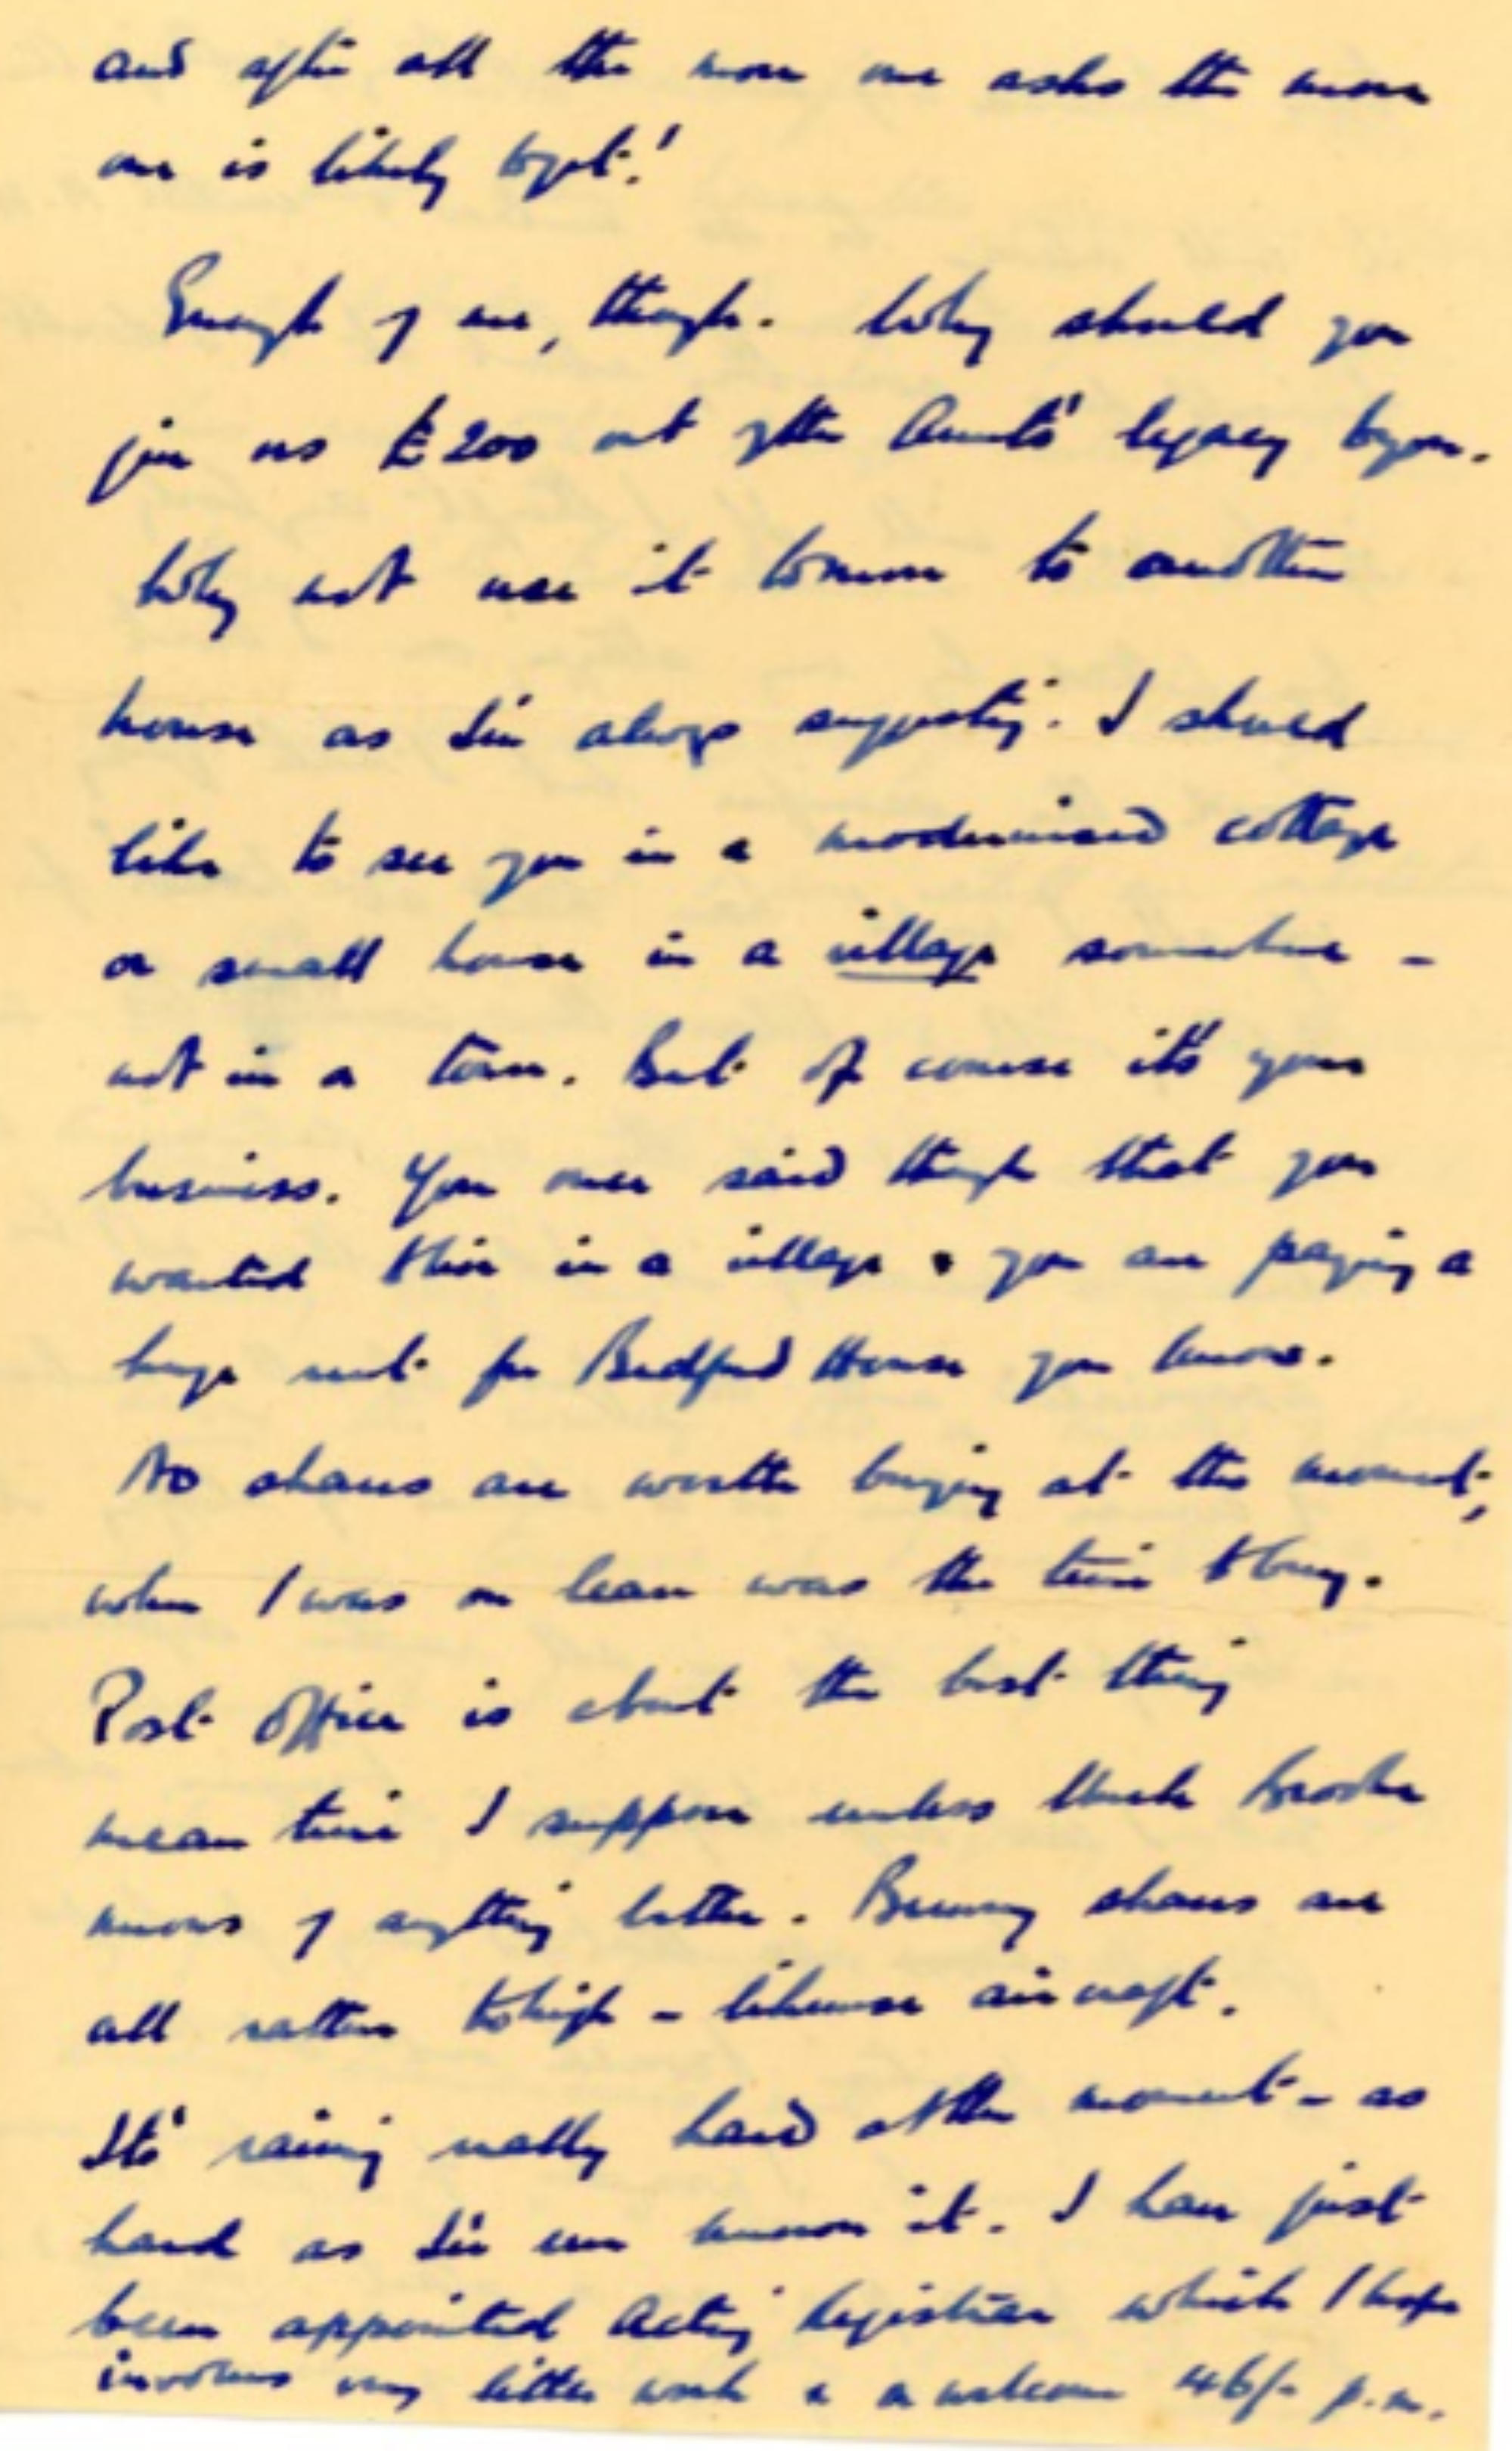 and after all the more one asks the more
one is likely to get!
Enough of me, though. Why should you
give us £200 out of the Aunts' legacy to you.
Why not use it to move to another
house as I'm always suggesting. I should
like to see you in a modernised cottage
or small house in a village somewhere -
not in a town. But of course it's your
business. You once said though that you
wanted this in a village & you are paying a
huge rent for Bedford House you know.
No shares are worth buying at the moment,
when I was on leave was the time to buy.
Post Office is about the best thing
mean time I suppose unless Uncle
knows of anything better. shares are
all rather too high - likewise aircraft.
It's raining really hard at the moment - as
hard as I've ever known it. I have just
been appointed Acting Registrar which I hope
involves very little work & a welcome 46/- p.m.